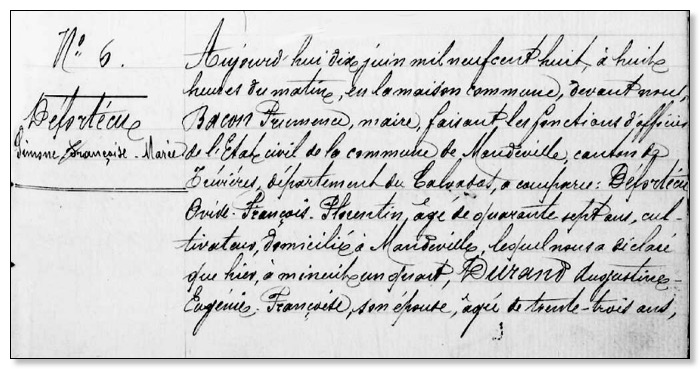 N° 6.
Déforteux
Simone Françoise-Marie
Aujourd'hui dix juin mil neuf cent huit, à huit
heures du matin, en la maison commune, devant nous,
Bacon Prudence, maire, faisant les fonctions d'officier
de l'Etat civil de la commune de Mandeville, canton de
Trévières, département du Calvados, a comparu: Déforteux
Ovide-François-Florentin, âgé de quarante sept ans, cul-
tivateur, domicilié à Mandeville, lequel nous a déclaré
que hier, à minuit un quart, Durand Augustine-
Eugénie-Françoise, son épouse, âgée de trente-trois ans,